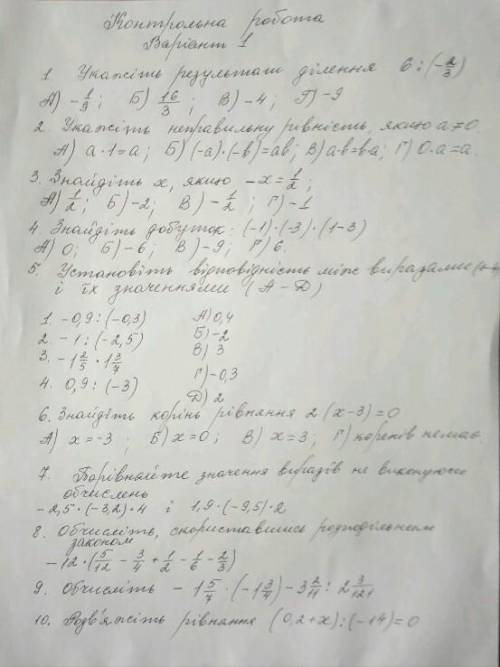 Контрольна робота
Варіант 1
1. Укажіть результат ділення 6 : (-2/3)
А) -1/9; Б) 16/3; В) -4; Г) -9
2. Укажіть неправильну рівність, якщо a≠0.
А) a·1=a; Б) (-a)·(-b)=ab; В) a·b=b·a; Г) 0·a=a.
3. Знайдіть x, якщо -x=1/2;
А) 1/2; Б) -2; В) -1/2; Г) -1
4. Знайдіть добуток: (-1)·(-3)·(1-3)
А) 0; Б) -6; В) -9; Г) 6.
5. Установіть відповідність між виразами
і їх значеннями (А-Д)
1. -0,9 : (-0,3) А) 0,4
2. -1 : (-2,5) Б) -2
3. -1 2/5 · 1 3/7 В) 3
4. 0,9 : (-3) Г) -0,3
Д) 2
6. Знайдіть корінь рівняння 2(x-3)=0
А) x=-3; Б) x=0; В) x=3; Г) коренів немає.
7. Порівняйте значення виразів не виконуючи
обчислень
-2,5·(-3,2)·4 і 1,9·(-9,5)·2
8. Обчисліть, скориставшись розподільним
законом
-12·(5/12 - 3/4 + 1/2 - 1/6 - 2/3)
9. Обчисліть -1 5/7 · (-1 3/4) - 3 2/11 : 2 3/121
10. Розв'яжіть рівняння (0,2+x):(-14)=0